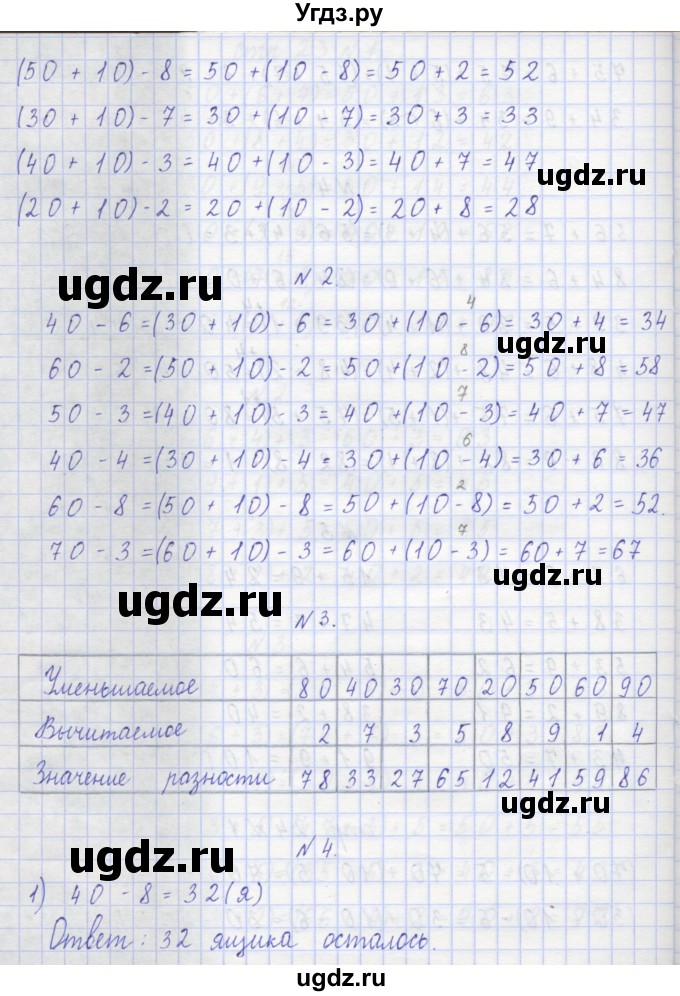 Угдз.ру
(50 + 10) - 8 = 50 + (10 - 8) = 50 + 2 = 52
(30 + 10) - 7 = 30 + (10 - 7) = 30 + 3 = 33
(40 + 10) - 3 = 40 + (10 - 3) = 40 + 7 = 47
ugdz.ru
(20 + 10) - 2 = 20 + (10 - 2) = 20 + 8 = 28
ugdz.ru
№ 2.
4
40 - 6 = (30 + 10) - 6 = 30 + (10 - 6) = 30 + 4 = 34
ugdz.ru
8
60 - 2 = (50 + 10) - 2 = 50 + (10 - 2) = 50 + 8 = 58
7
50 - 3 = (40 + 10) - 3 = 40 + (10 - 3) = 40 + 7 = 47
ugdz.ru
6
40 - 4 = (30 + 10) - 4 = 30 + (10 - 4) = 30 + 6 = 36
2
60 - 8 = (50 + 10) - 8 = 50 + (10 - 8) = 50 + 2 = 52.
7
70 - 3 = (60 + 10) - 3 = 60 + (10 - 3) = 60 + 7 = 67
ugdz.ru
ugdz.ru
№ 3.
Уменьшаемое 80 40 30 70 20 50 60 90
Вычитаемое 2 7 3 5 8 9 1 4
Значение разности 78 33 27 65 12 41 59 86
ugdz.ru
ugdz.ru
№ 4.
1) 40 - 8 = 32 (я)
Ответ: 32 ящика осталось.
ugdz.ru
ugdz.ru